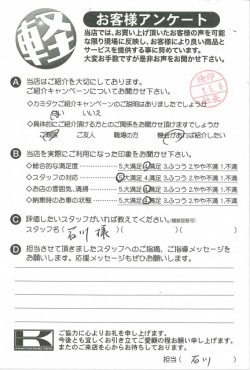 軽
お客様アンケート
当店では、お買い上げ頂いたお客様の声を可能
な限り現場に反映し、お客様により良い商品と
サービスを提供する事に努めています。
大変お手数ですが是非お声をお聞かせ下さい。
A 当店はご紹介を大切にしております。
ご紹介キャンペーンについてお聞かせ下さい。
◇カミタケご紹介キャンペーンのご説明はありましたでしょうか
はい いいえ
◇具体的にご紹介頂ける方とのご関係をお聞かせ頂けますでしょうか
ご親戚 ご友人 職場の方 機会があれば紹介したい
B 当店を実際にご利用になった印象をお聞かせ下さい。
◇総合的な満足度 5.大満足 4.満足 3.ふつう 2.やや不満 1.不満
◇スタッフの対応 5.大満足 4.満足 3.ふつう 2.やや不満 1.不満
◇お店の雰囲気、清掃 5.大満足 4.満足 3.ふつう 2.やや不満 1.不満
◇納車時のお車の状態 5.大満足 4.満足 3.ふつう 2.やや不満 1.不満
C 評価したいスタッフがいれば教えてください。(複数回答可)
スタッフ名( 石川 様 )
D 担当させて頂きましたスタッフへのご指摘、ご指導メッセージを
お願いします。応援メッセージもぜひお願いします。
K
ご協力に心よりお礼を申し上げます。
今後とも宜しくお引き立てご愛顧の程お願い申し上げます。
またのご来店を心からお待ちしております。
担当( 石川 )